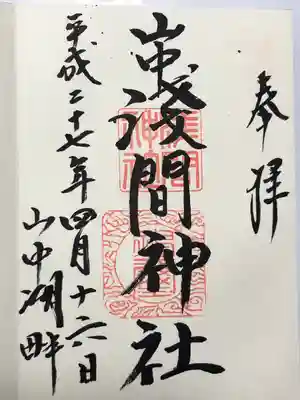 奉拝
山中浅間神社
平成二十七年四月十六日
山中湖畔